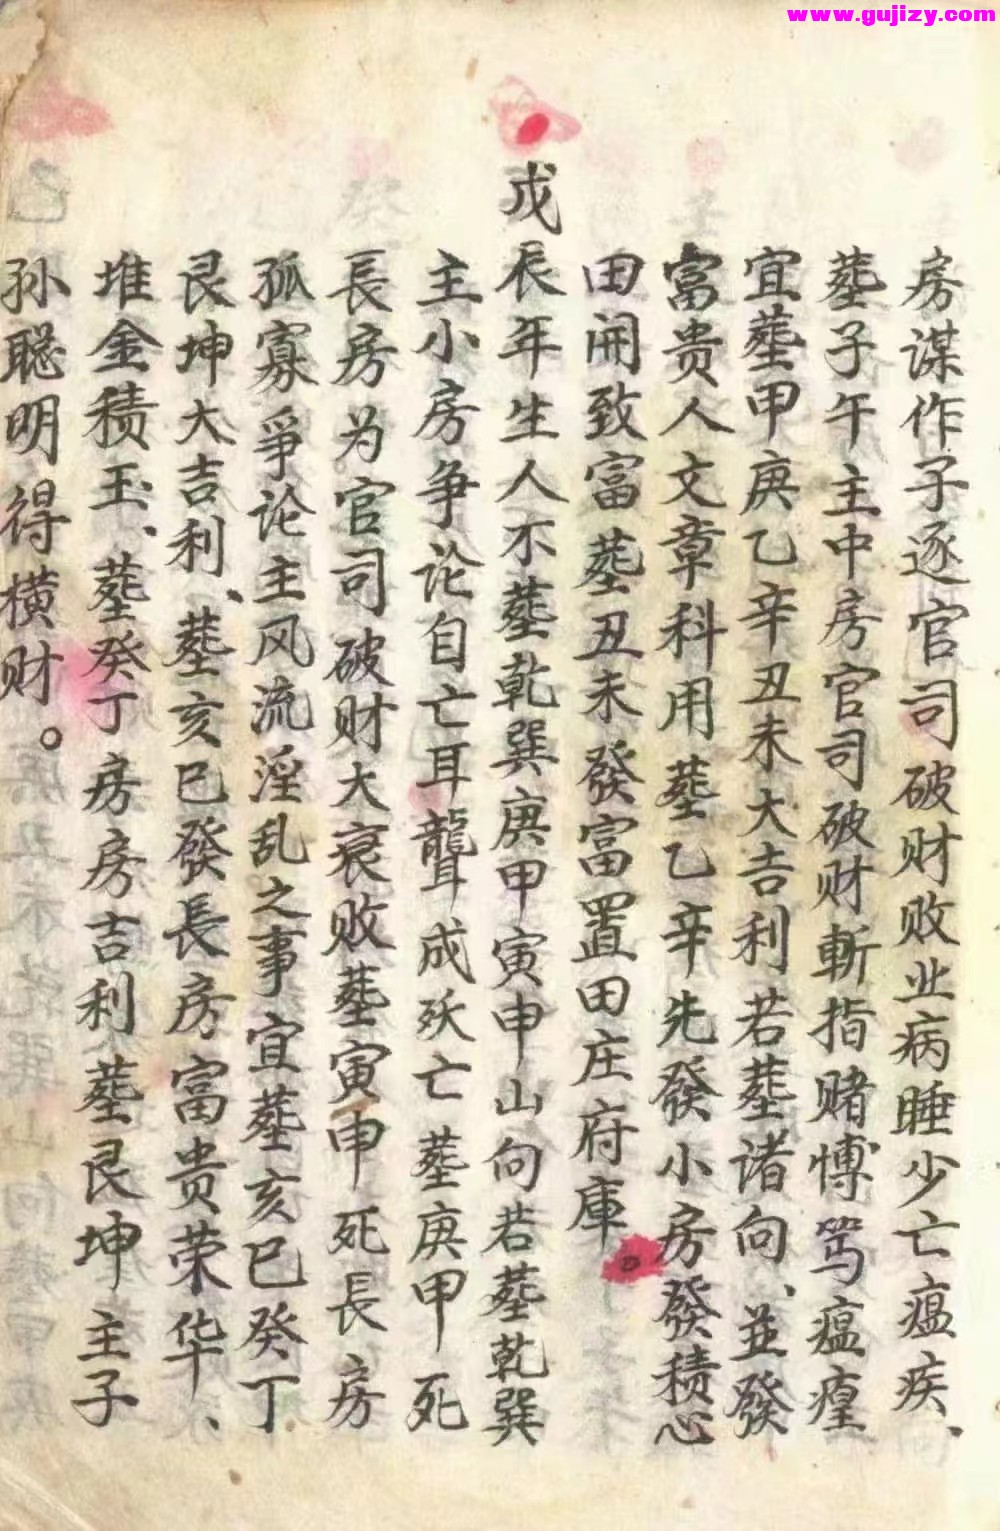 www.gujizy.com
房谋作子逐官司破财败业病睡少亡瘟疾、
塟子午主中房官司破财斬指赌博笃瘟瘽
宜塟甲庚乙辛丑未大吉利若塟诸向、並發
富贵人文章科用塟乙辛先發小房發積心
田開致富塟丑未發富置田庄府庫。
戊辰年生人不塟乾巽庚甲寅申山向若塟乾巽
主小房争论自亡耳聾成殀亡塟庚甲死
長房为官司破财大衰败塟寅申死長房
孤寡爭论主风流淫乱之事宜塟亥巳癸丁
艮坤大吉利、塟亥巳發長房富贵荣华、
堆金積玉、塟癸丁房房吉利塟艮坤主子
孙聪明得横财。